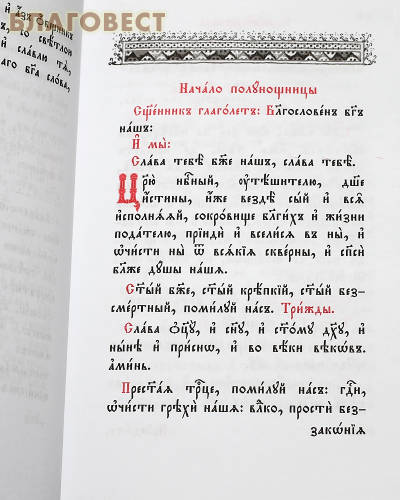 БЛАГОВЕСТ
Нача́ло полу́нощницы
Сщ҃е́нникъ глаго́летъ: Бл҃гослове́нъ бг҃ъ
на́шъ:
И҆ мы̀:
Сла́ва тебѣ̀ бж҃е на́шъ, сла́ва тебѣ̀.
Цр҃ю̀ нбⷭ҇ный, ᲂу҆тѣ́шителю, дш҃е
и҆́стины, и҆́же вездѣ̀ сы́й и҆ всѧ̑
и҆сполнѧ́ѧй, сокро́вище бл҃ги́хъ и҆ жи́зни
пода́телю, прїидѝ и҆ всели́сѧ въ ны̀, и҆
ѡ҆чи́сти ны̀ ѿ всѧ́кїѧ скве́рны, и҆ сп҃сѝ
бл҃же ду́шы на́шѧ.
Ст҃ы́й бж҃е, ст҃ы́й крѣ́пкїй, ст҃ы́й без-
сме́ртный, поми́луй на́съ. Три́жды.
Сла́ва ѻ҆ц҃ꙋ̀, и҆ сн҃ꙋ, и҆ ст҃о́мꙋ дх҃ꙋ, и҆
ны́нѣ и҆ при́снѡ, и҆ во вѣ́ки вѣкѡ́въ.
а҆ми́нь.
Прест҃а́ѧ трⷪ҇це, поми́луй на́съ: гдⷭ҇и,
ѡ҆чи́сти грѣхѝ на́шѧ: влⷣко, простѝ без-
зако́нїѧ